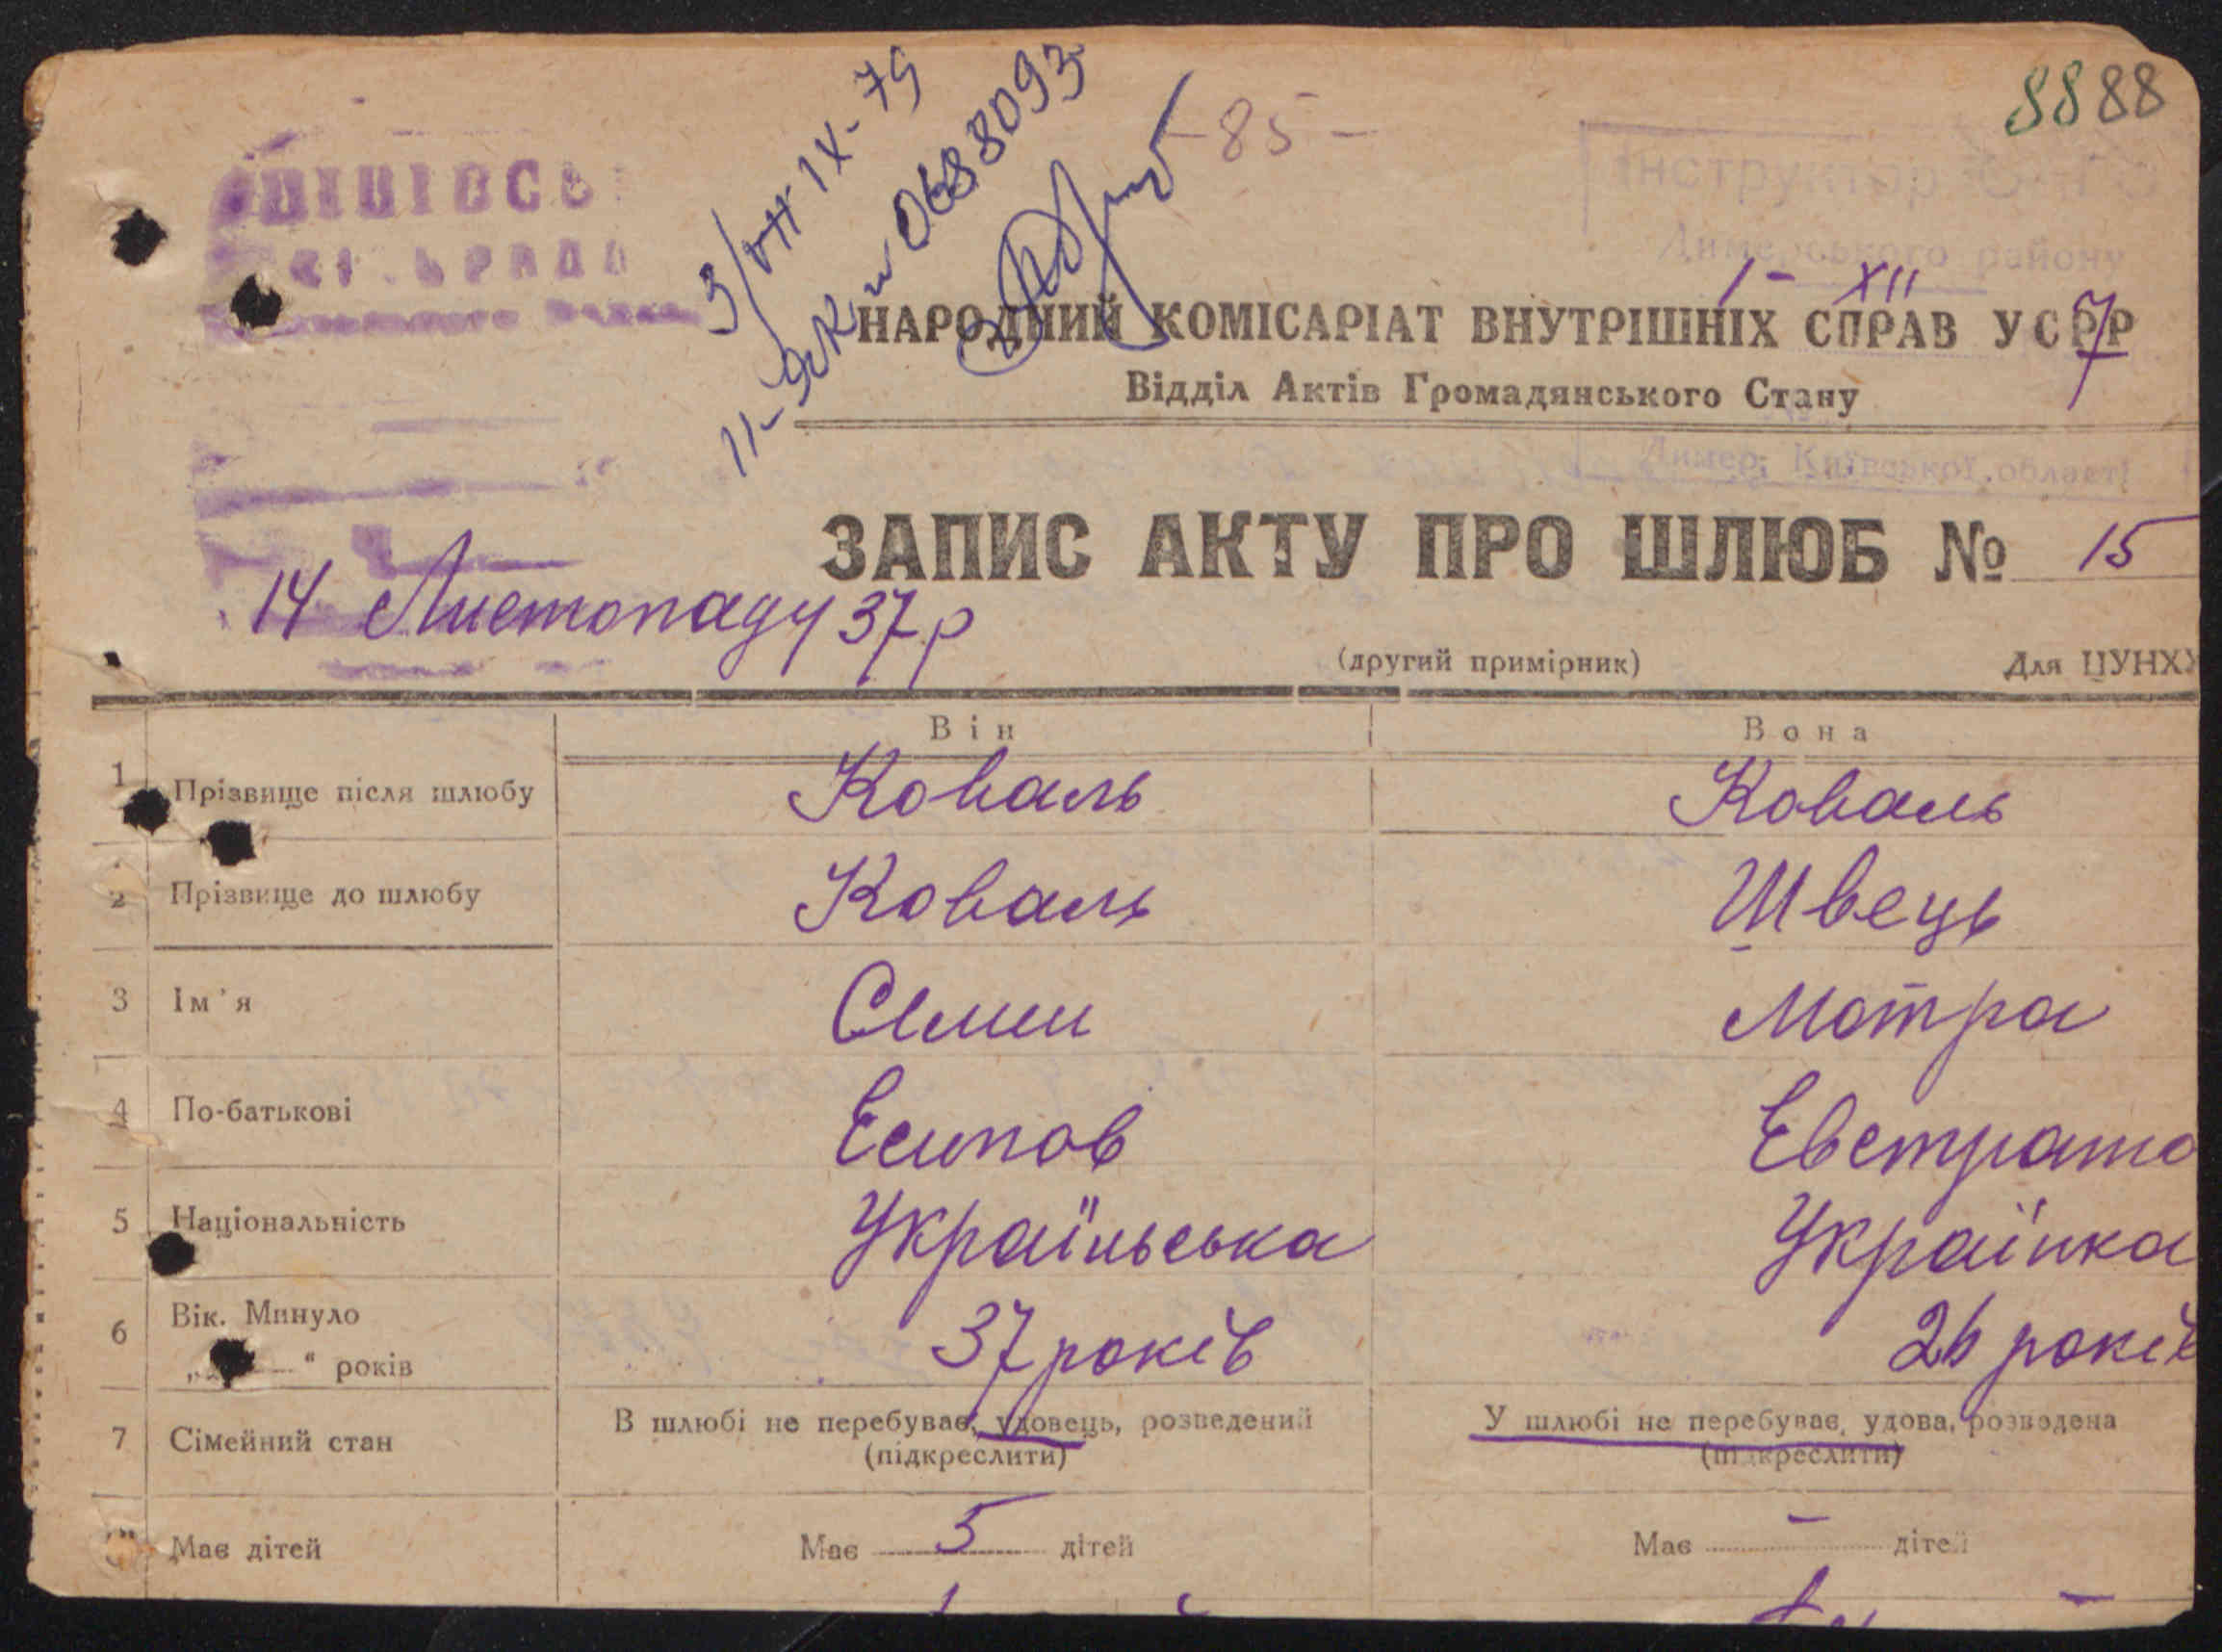 88 88
- 85 -
IX - 79
0688093
Інструктор
Димерського району
1 - XII
7
НАРОДНИЙ КОМІСАРІАТ ВНУТРІШНІХ СПРАВ УСРР
Відділ Актів Громадянського Стану
Димер, Київської області
ЗАПИС АКТУ ПРО ШЛЮБ № 15
14 Листопаду 37 р
(другий примірник) Для ЦУНХУ
Він Вона
1 Прізвище після шлюбу Коваль Коваль
2 Прізвище до шлюбу Коваль Швець
3 Ім'я Семен Мотра
4 По-батькові Есипов Евстрато
5 Національність Україньська Українка
6 Вік. Минуло
„ “ років 37 років 26 років
7 Сімейний стан В шлюбі не перебував, удовець, розведений У шлюбі не перебував, удова, розведена
(підкреслити) (підкреслити)
Має дітей Має 5 дітей Має - дітей